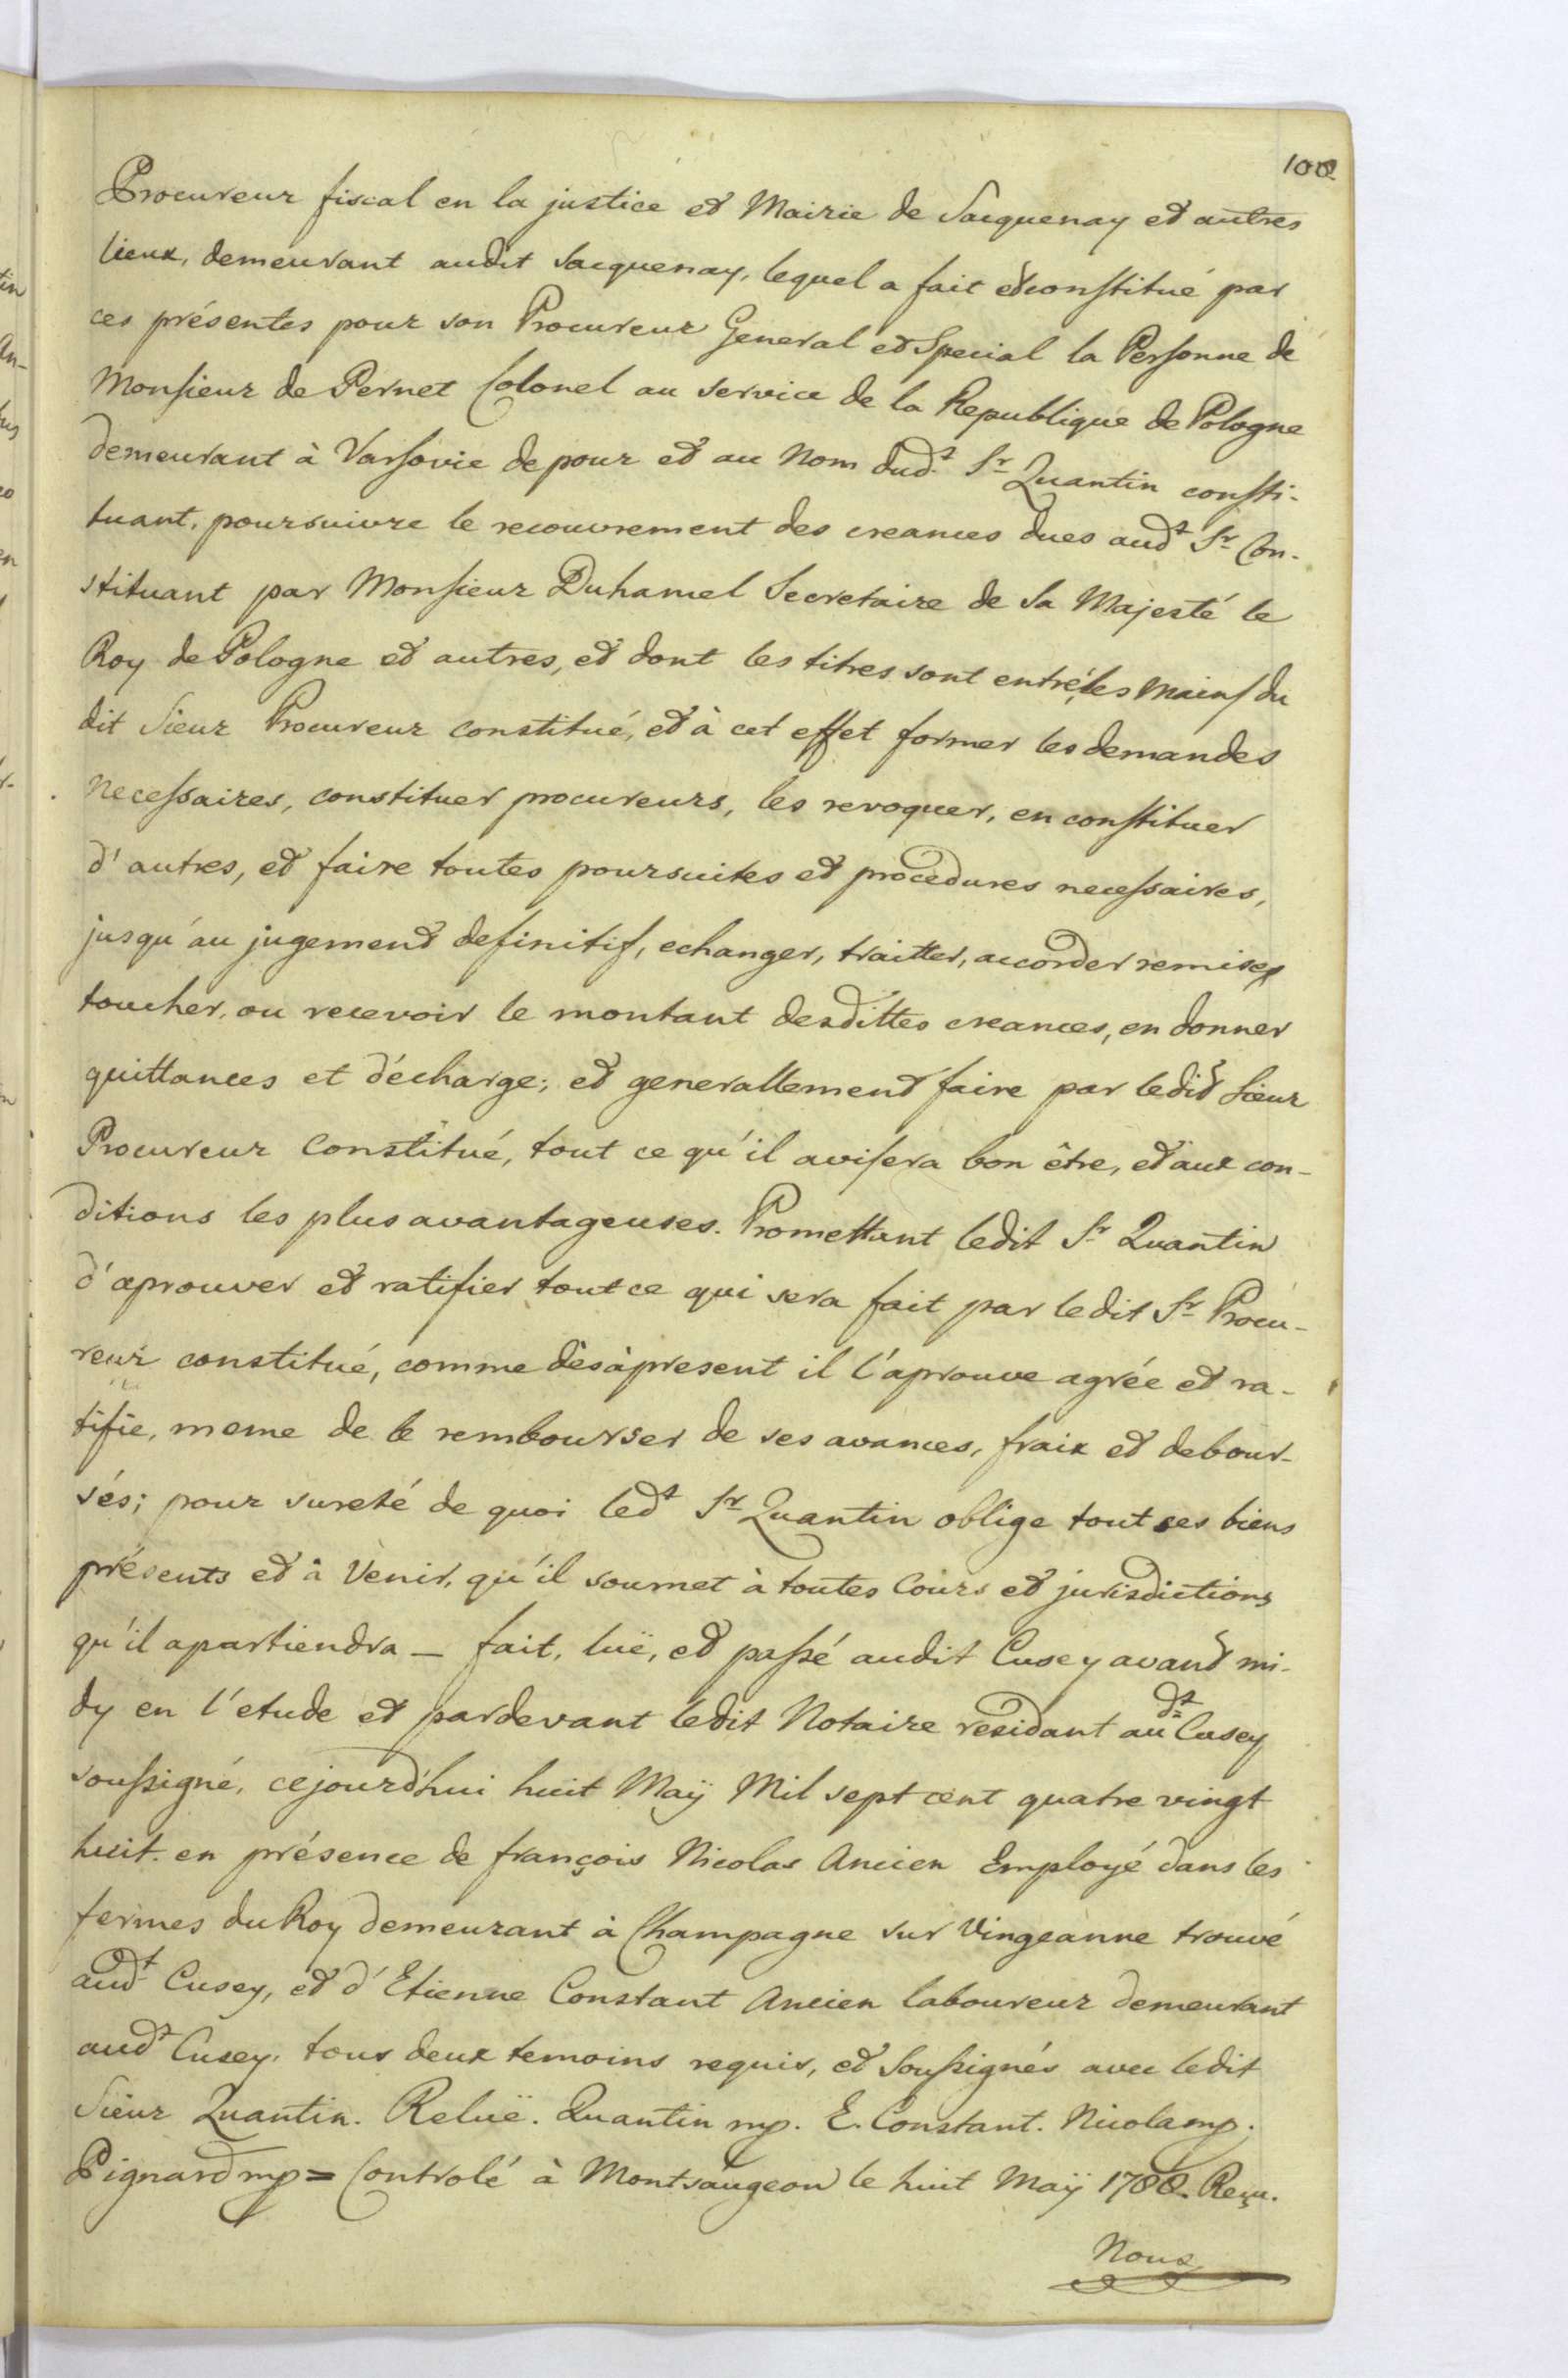 100
Procureur fiscal en la justice et Mairie de Sacquenay et autres
lieux, demeurant audit Sacquenay, lequel a fait et constitué par
ces présentes pour son Procureur General et Special la Personne de
Monsieur de Pernet Colonel au service de la Republique de Pologne
demeurant à Varsovie de pour et au Nom dud.t S.r Quantin consti-
tuant, poursuivre le recouvrement des creances dues aud.t S.r Con-
stituant par Monsieur Duhamel Secretaire de Sa Majesté le
Roy de Pologne et autres, et dont les titres sont entré les Mains du
dit Sieur Procureur constitué, et à cet effet former les demandes
Necessaires, constituer procureurs, les revoquer, en constituer
d'autres, et faire toutes poursuites et procedures necessaires,
jusqu'au jugement definitif, echanger, traitter, accorder remises
toucher, ou recevoir le montant desdittes creances, en donner
quittances et décharge; et generallement faire par ledit Sieur
Procureur Constitué, tout ce qu'il avisera bon être, et aux con-
ditions les plus avantageuses. Promettant ledit S.r Quantin
d'aprouver et ratifier tout ce qui sera fait par ledit S.r Procu-
reur constitué, comme dèsàpresent il l'aprouve agrée et ra-
tifie, meme de le rembourser de ses avances, fraix et debour-
sés; pour sureté de quoi led.t S.r Quantin oblige tout ses biens
présents et à Venir, qu'il soumet à toutes Cours et jurisdictions
qu'il apartiendra _ fait, luë, et passé audit Cusey avant mi-
dy en l'etude et pardevant ledit Notaire residant aud.t Cusey
soussigné, cejourd'hui huit Maÿ Mil sept cent quatre vingt
huit. en présence de françois Nicolas Ancien Employé dans les
fermes du Roy demeurant à Champagne sur Vingeanne trouvé
aud.t Cusey, et d'Etienne Constant Ancien laboureur demeurant
aud.t Cusey, tous deux temoins requis, et Soussignés avec ledit
Sieur Quantin. Reluë. Quantin mp. E. Constant. Nicola mp.
Pignard mp = Controlé à Montsaugeon le huit Maÿ 1788. Reçu.
Nous